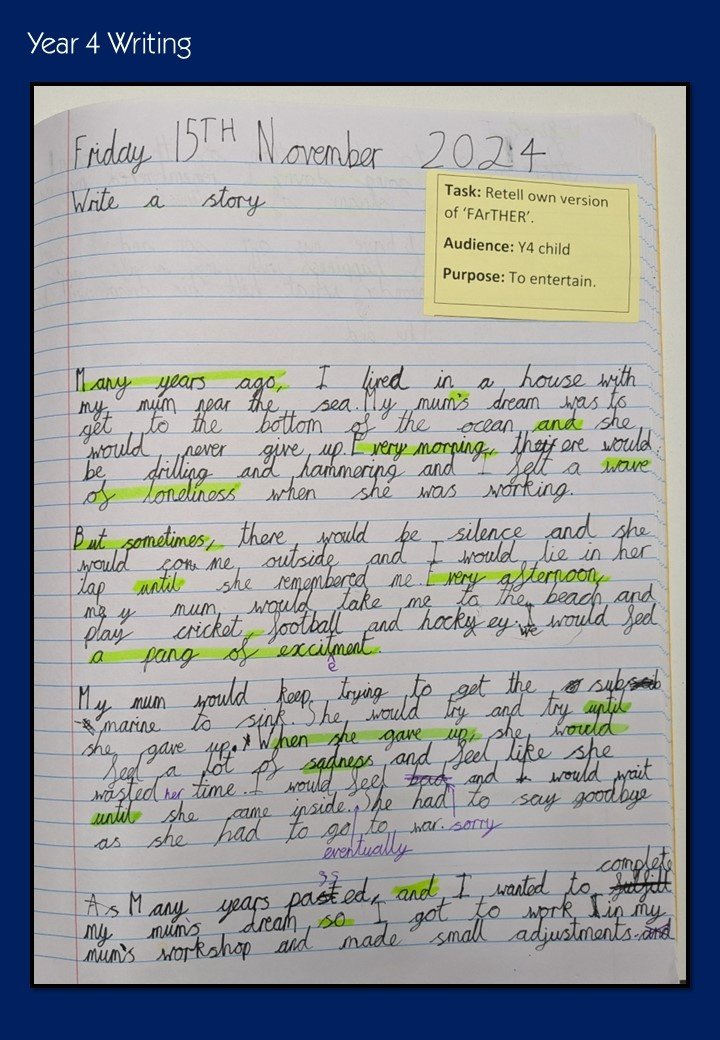 Year 4 Writing
Friday 15TH November 2024
Write a story
Task: Retell own version
of 'FArTHER'.
Audience: Y4 child
Purpose: To entertain.
Many years ago, I lived in a house with
my mum near the sea. My mum's dream was to
get to the bottom of the ocean and she
would never give up. Every morning, there would
be drilling and hammering and I felt a wave
of loneliness when she was working.
But sometimes, there would be silence and she
would come outside and I would lie in her
lap until she remembered me. Every afternoon,
my mum would take me to the beach and
play cricket, football and hockey. We would feel
a pang of excitement.
My mum would keep trying to get the sub
marine to sink. She would try and try until
she gave up. When she gave up, she would
feel a lot of sadness and feel like she
wasted her time. I would feel sorry and would wait
until she came inside. eventually She had to say goodbye
as she had to go to war.
As Many years passed, and I wanted to complete
my mum's dream so I got to work in my
mum's workshop and made small adjustments.